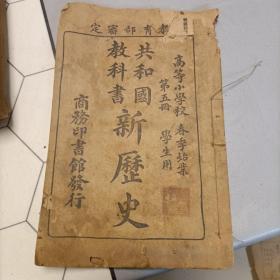 教育部審定
高等小學校 春季始業
第五冊 學生用
共和國
教科書
新歷史
商務印書館發行